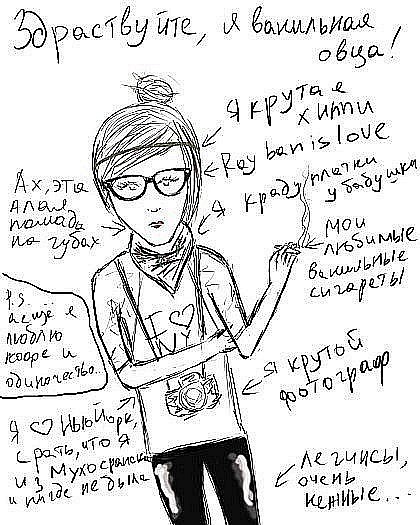 Здраствуйте, я ванильная
овца!
Я КРУТАЯ
ХИППИ
Ray ban is love
Я краду платки
у бабушки
Ах, эта
алая
помада
на губах
Мои
любимые
ванильные
сигареты
P.S.
а ещё я
люблю
кофе и
одиночество..
I ♡
NY
Я крутой
фотограф
Я ♡ Нью Йорк,
срать, что я
из Мухосранска
и нигде не была
Легинсы,
очень
нежные...